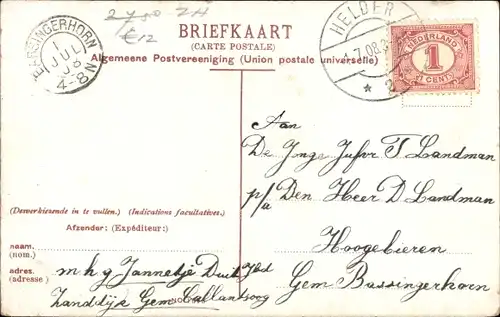 2450 ZH
€12
BRIEFKAART
(CARTE POSTALE)
Algemeene Postvereeniging (Union postale universelle)
BARSINGERHORN
1
JUL
08
4-8N
HELDER
1.7.08
* 2
NEDERLAND
1
CENT
Aan
De Jonge Jufvr T Landman
p/a Den Heer D Landman
Hoogebieren
Gem Bassingerhorn
(Desverkiezende in te vullen.) (Indications facultatives.)
Afzender: (Expéditeur:)
naam.
(nom.)
adres.
(adresse)
m h g Jannetje
Zanddijk Gem Callantsoog